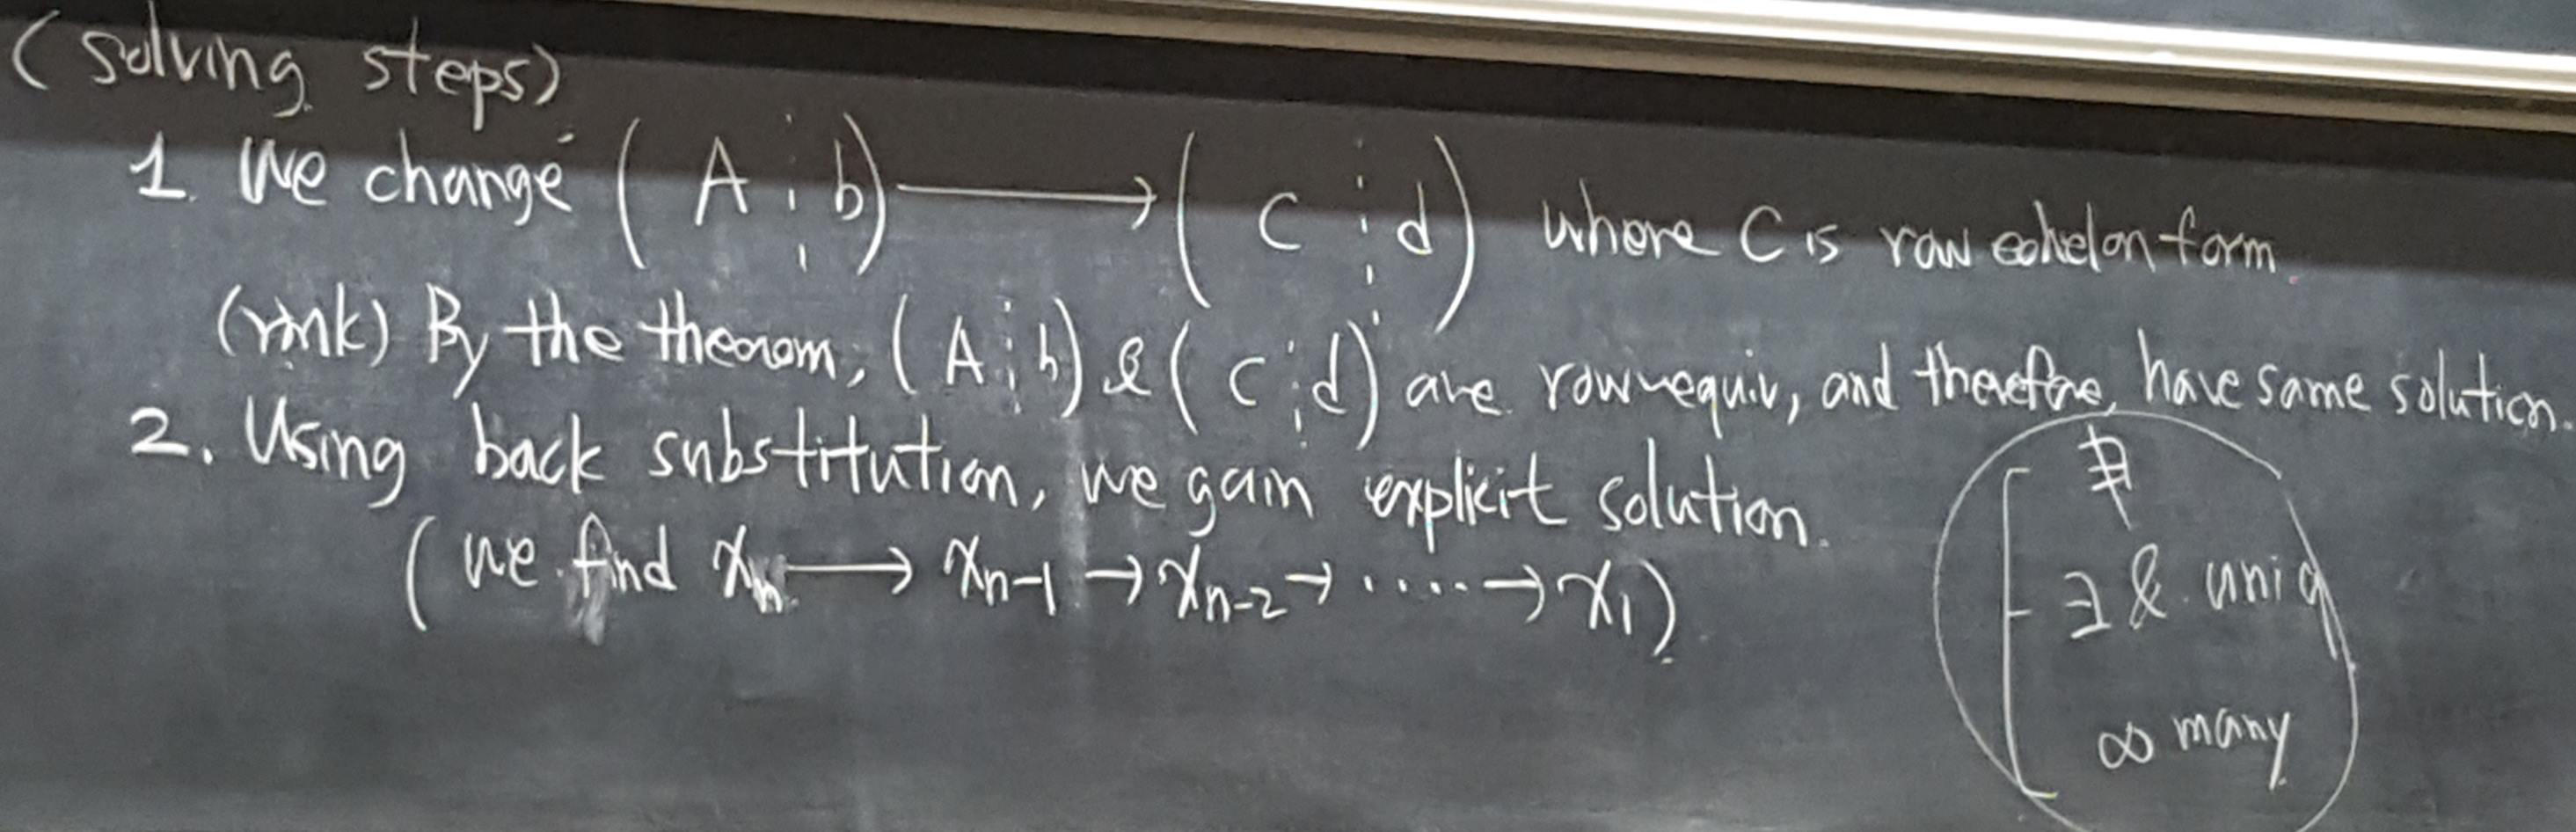 (solving steps)
1. We change (A ⋮ b) ⟶ (C ⋮ d) where C is row echelon form.
(rmk) By the theorem, (A ⋮ b) & (C ⋮ d) are row-equiv, and therefore, have same solution.
2. Using back substitution, we gain explicit solution.
(we find xₙ ⟶ xₙ₋₁ → xₙ₋₂ → ‥‥ → x₁)
∄
∃ & uniq
∞ many